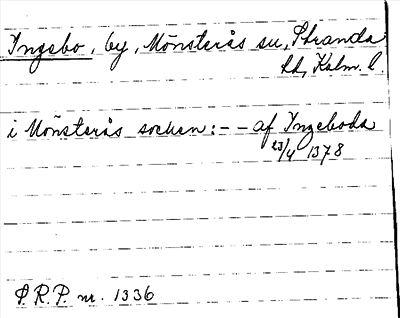 Ingebo, by, Mönsterås sn, Stranda
hd, Kalm. l.
i Mönsterås socken: – – af Ingeboda
23/4 1378
S.R.P. nr. 1336